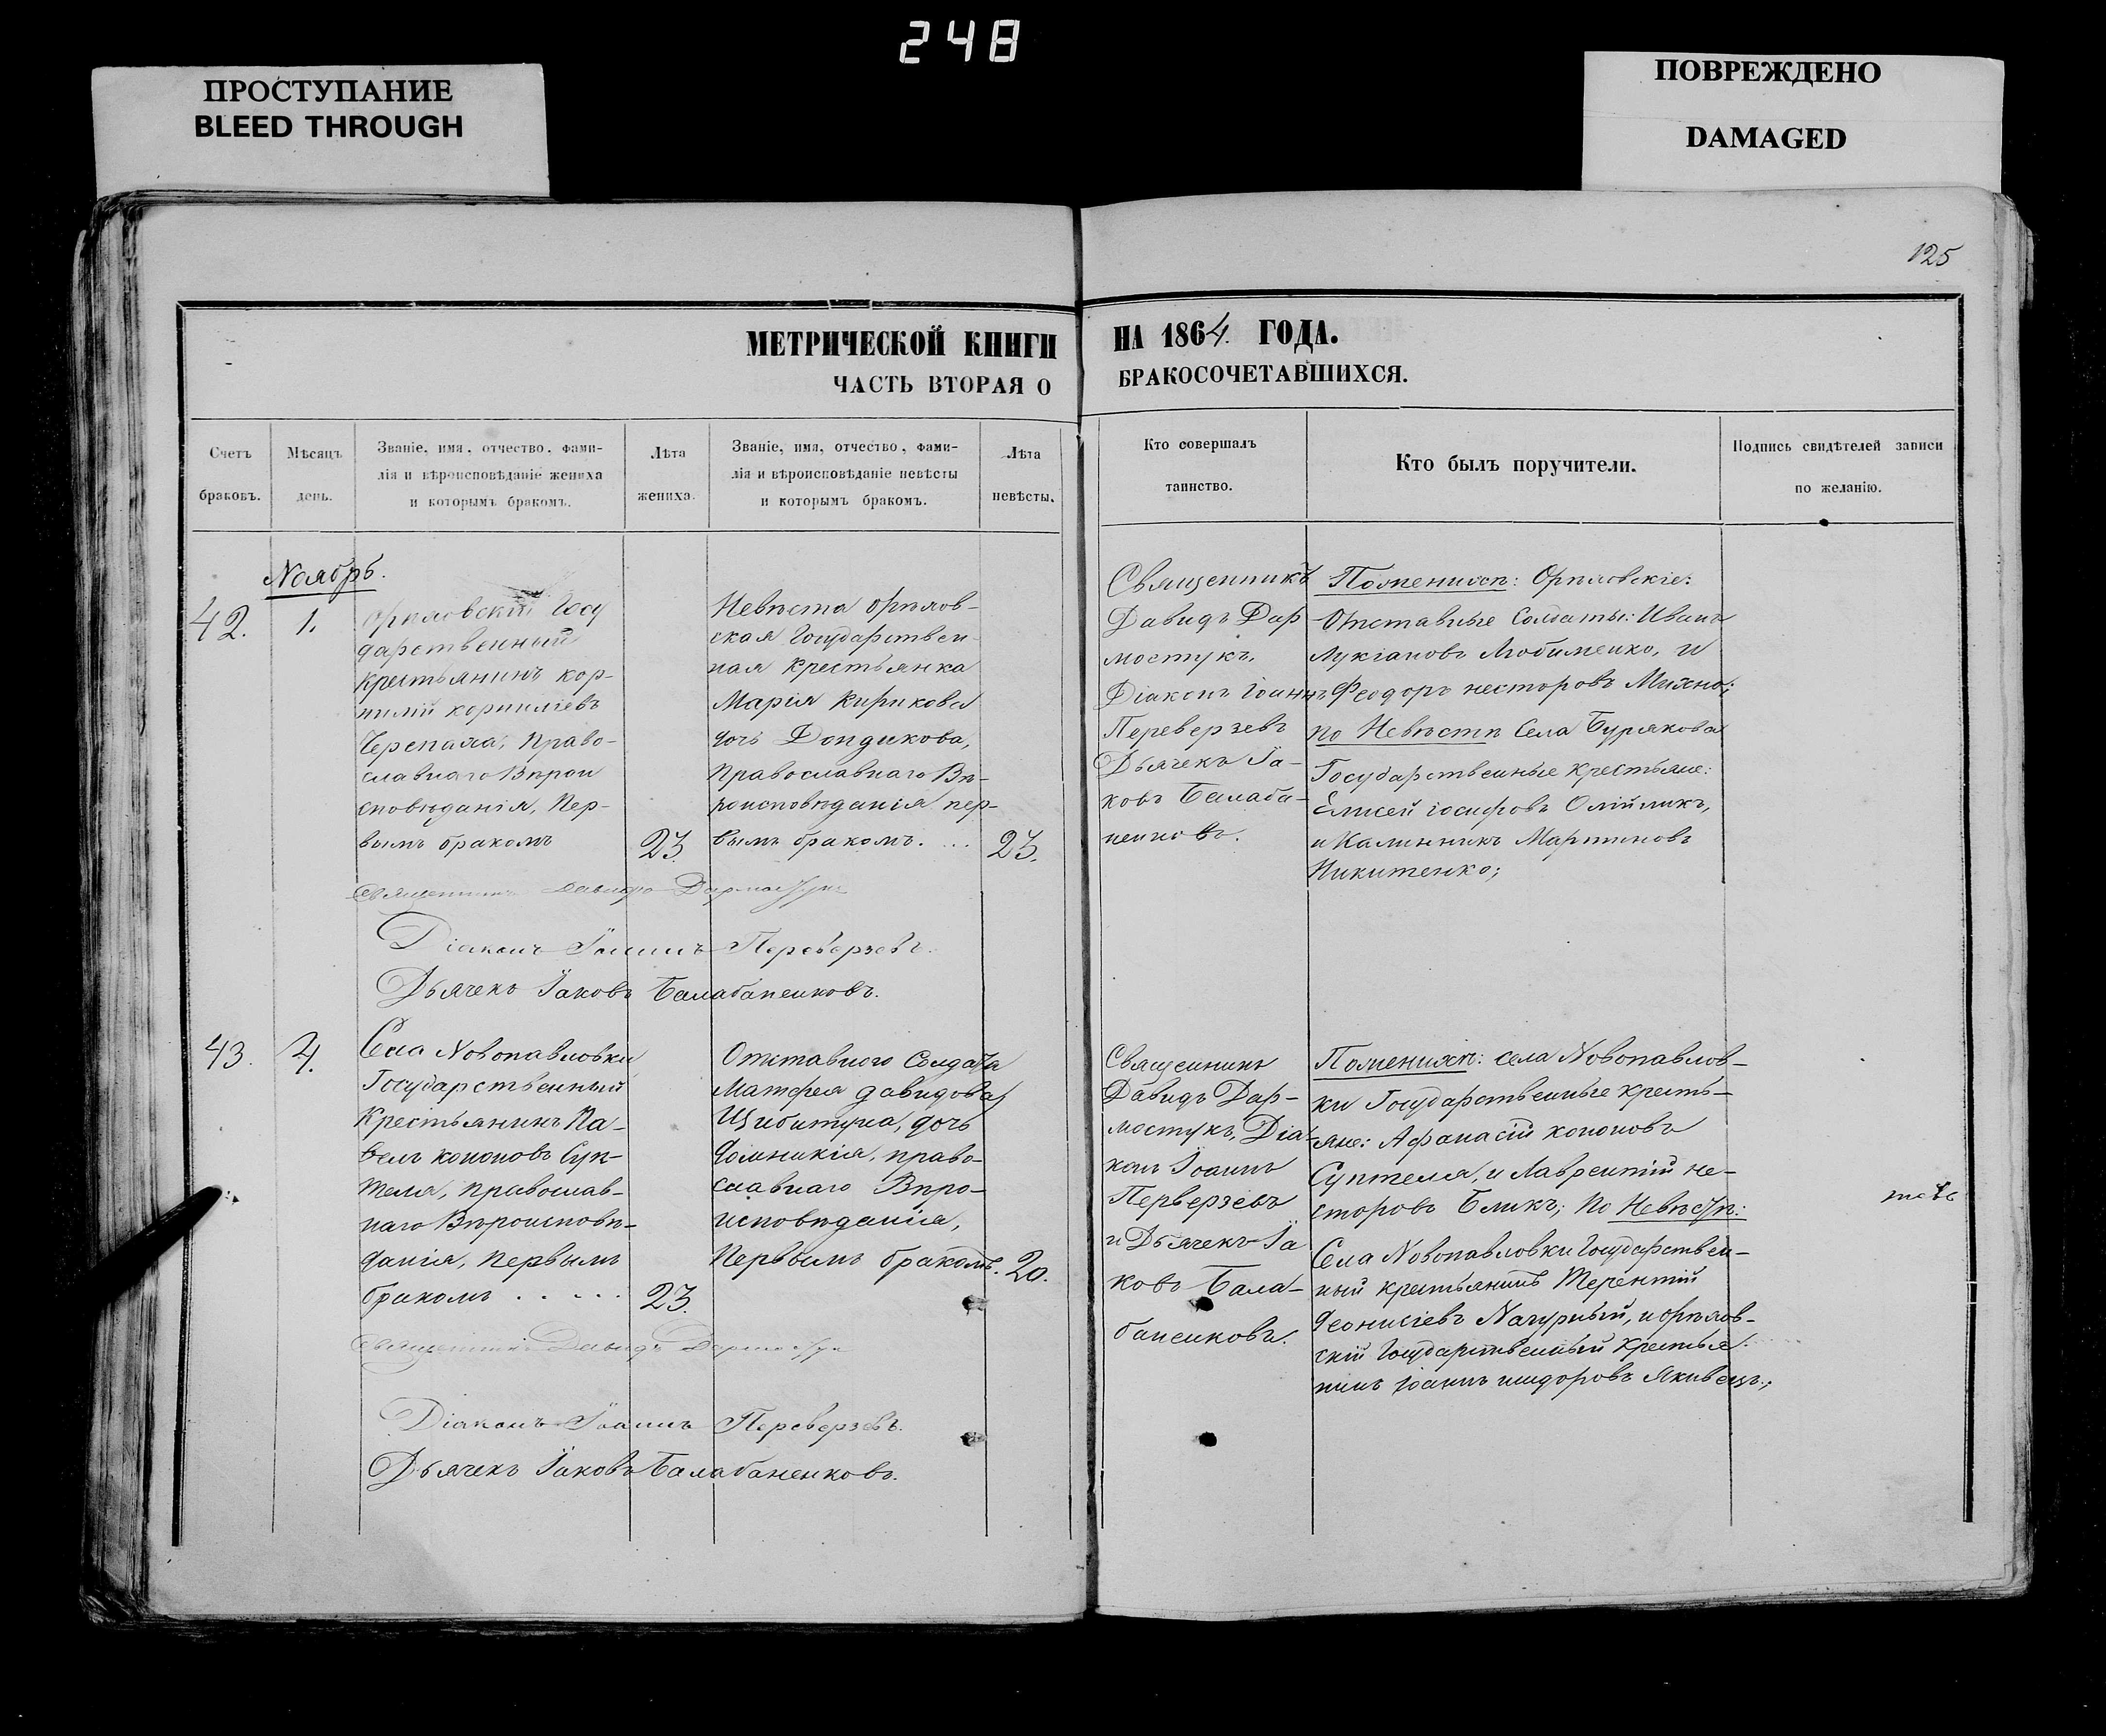 248
ПРОСТУПАНИЕ
BLEED THROUGH
ПОВРЕЖДЕНО
DAMAGED
125
МЕТРИЧЕСКОЙ КНИГИ НА 1864. ГОДА.
ЧАСТЬ ВТОРАЯ О БРАКОСОЧЕТАВШИХСЯ.
Счетъ
браковъ.
Мѣсяцъ
день.
Званіе, имя, отчество, фами-
лія и вѣроисповѣданіе жениха
и которымъ бракомъ.
Лѣта
жениха.
Званіе, имя, отчество, фами-
лія и вѣроисповѣданіе невѣсты
и которымъ бракомъ.
Лѣта
невѣсты.
Кто совершалъ
таинство.
Кто былъ поручители.
Подпись свидѣтелей записи
по желанію.
Ноябрь.
42.
1.
Орѣховскій Госу
дарственный
Крестьянинъ Кор-
нилій Корниліевъ
Черепаха, Право-
славнаго Вѣрои
сповѣданія, Пер-
вымъ бракомъ
23.
Невѣста Орѣхов-
ская Государствен-
ная Крестьянка
Марія Кирикова
дочь Дондикова,
Православнаго Вѣ-
роисповѣданія пер-
вымъ бракомъ. ...
23.
Священникъ
Давидъ Дар
мостукъ.
Діаконъ Іоаннъ
Переверзевъ
Дьячекъ Іа-
ковъ Балаба-
ненковъ.
По женихѣ: Орѣховскіе:
Отставные Солдаты: Иванъ
Лукіановъ Любименко, и
Феодоръ Несторовъ Михно;
По Невѣстѣ Села Бурякова
Государственные Крестьяне:
Елисей Іосифовъ Олійникъ,
и Калинникъ Мартиновъ
Никитенко;
Священникъ Давидъ Дармостукъ
Діаконъ Іоаннъ Переверзевъ.
Дьячекъ Іаковъ Балабаненковъ.
43.
4.
Села Новопавловки
Государственный
Крестьянинъ Па-
велъ Кононовъ Суп-
теля, Православ-
наго Вѣроисповѣ-
данія, Первымъ
бракомъ . . . . .
23.
Отставного Солдата
Матфея Давидова
Щибитуна, дочь
Домникія, право-
славнаго Вѣро-
исповѣданія,
Первымъ бракомъ.
20.
Священникъ
Давидъ Дар-
мостукъ, Діа-
конъ Іоаннъ
Перверзевъ
и Дьячекъ Іа
ковъ Бала-
баненковъ.
По женихѣ: села Новопавлов-
ки Государственные Кресть-
яне: Афанасій Кононовъ
Суптеля, и Лаврентій Не-
сторовъ Бликъ; По Невѣстѣ:
Села Новопавловки Государствен-
ный крестьянинъ Терентій
Діонисіевъ Начурный, и Орѣхов-
скій Государственный Крестья-
нинъ Іоаннъ Исидоровъ Якивецъ;
Священникъ Давидъ Дармостукъ
Діаконъ Іоаннъ Переверзевъ.
Дьячекъ Іаковъ Балабаненковъ.